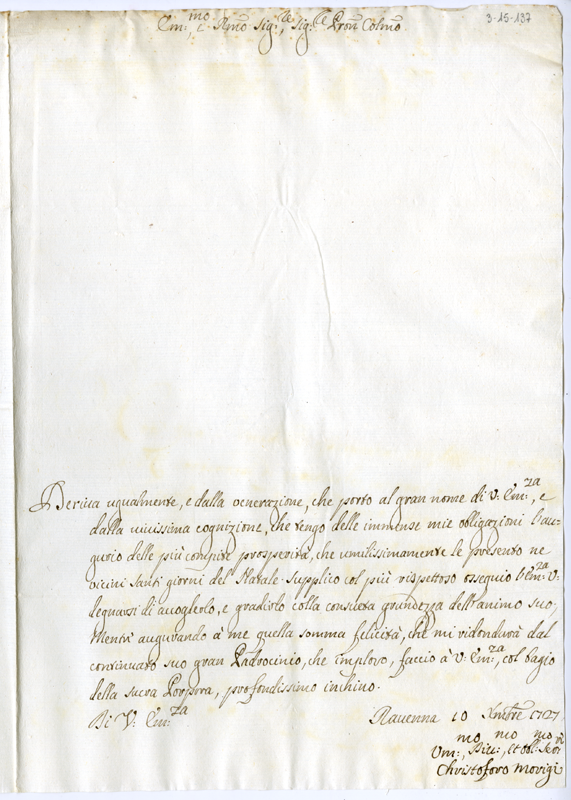 3-15-137
Em:mo e Rmo Sig:re, Sig:re Pron Colmo
Deriva ugualmente, e dalla venerazione, che porto al gran nome di V: Em:za, e
dalla vivissima cognizione, che tengo delle immense mie obligazioni l'au-
gurio delle più compite prosperità, che umilissimamente le presento ne
vicini Santi giorni del Natale. Supplico col più rispettoso ossequio l'Em:za V:
degnarsi di accoglerlo, e gradirlo colla consueta grandezza dell'animo suo;
Mentr' augurando à me quella somma felicità, che mi ridondurà dal
continuato suo gran Padrocinio, che imploro, faccio à V: Em:za, col bagio
della sacra Porpora, profondissimo inchino.
Di V: Em:za
Ravenna 10 Xmbre 1727
Um:mo, Div:mo, et obl:mo Ser:re
Christoforo Morigi